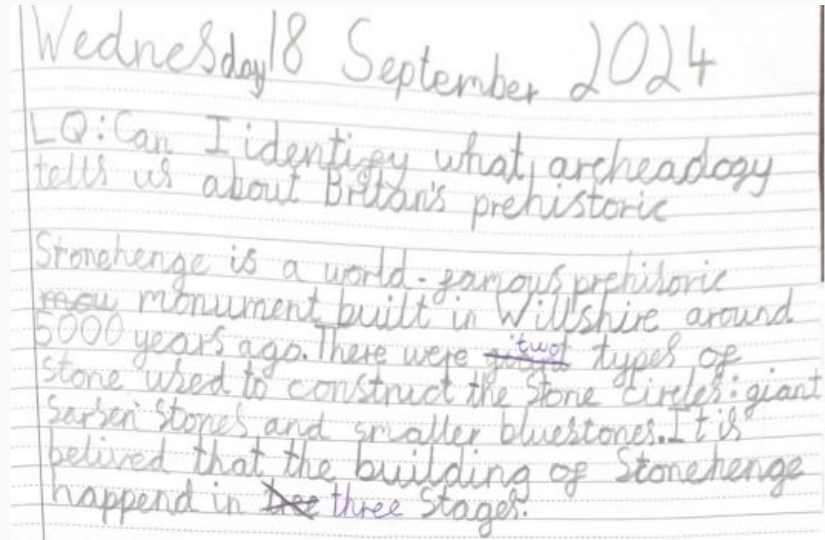 Wednesday 18 September 2024
LQ: Can I identify what archeadogy
tells us about Britan's prehistoric
Stonehenge is a world-famous prehisoric
monument built in Willshire around
5000 years ago. There were two types of
stone used to construct the stone circles: giant
Sarsen Stones and smaller bluestones. It is
belived that the building of Stonehenge
happend in three Stages.